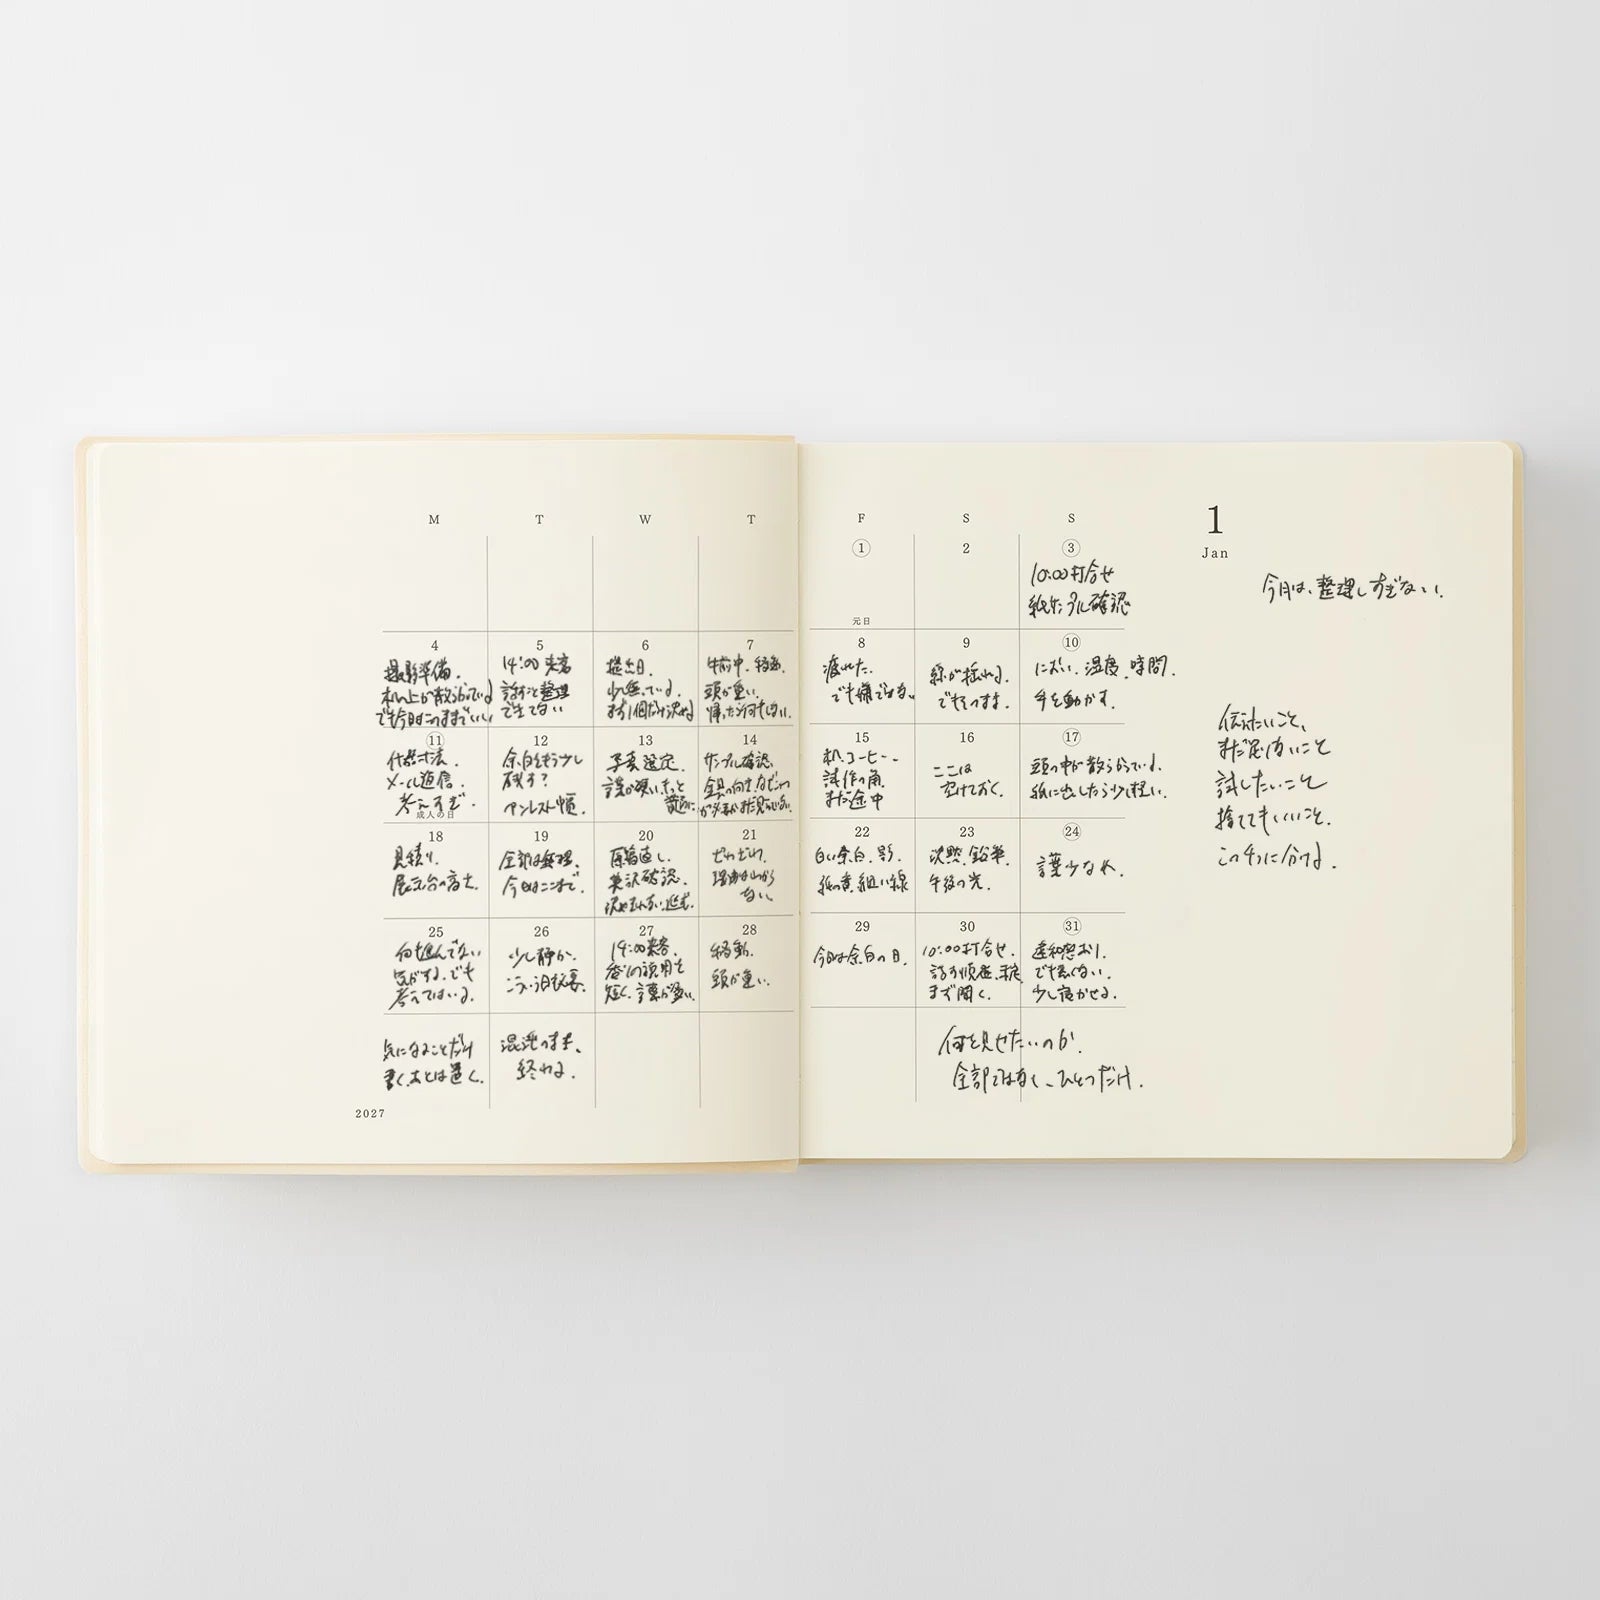 M T W T F S S
1
Jan
今月は、整理しすぎない.
1
元日
2
3
10:00打合せ
紙サンプル確認
4
撮影準備.
机の上が散らかっている
でも今日はこのままでいい
5
14:00 来客
話すこと整理
できてない
6
提出日.
少し焦っている.
まず1個だけ決める
7
午前中、移動.
頭が重い.
帰ったら何もしない.
8
疲れた.
でも嫌ではない
9
線が揺れる.
でもそのまま.
10
におい、温度、時間.
手を動かす.
11
什器寸法.
メール返信.
考えすぎ.
成人の日
12
余白をもう少し
残す?
13
写真選定.
14
サンプル確認.
15
机、コーヒー、
試作の角.
まだ途中
16
ここは
空けておく.
17
頭の中が散らかっている.
紙に出したら少し軽い.
18
見積り.
展示台の高さ.
19
全部は無理.
今日はここまで.
20
原稿直し.
英訳確認.
21
ざわざわ.
理由はわから
ない.
22
白い余白、影.
紙の黄、細い線
23
沈黙、鉛筆.
午後の光.
24
言葉少なめ.
25
何も進んでない
気がする.でも
考えてはいる.
26
少し静か.
こういう日も必要.
27
14:00来客.
短く.言葉が多い.
28
移動.
頭が重い.
29
今日は余白の日.
30
10:00打合せ.
まず聞く.
31
違和感あり.
でも悪くない.
少し寝かせる.
気になることだけ
書く.あとは置く.
混沌のまま、
終わる.
何を見せたいのか.
全部ではなく、ひとつだけ.
伝えたいこと、
まだ足りないこと
試したいこと
捨ててもいいこと.
この4つに分ける.
2027